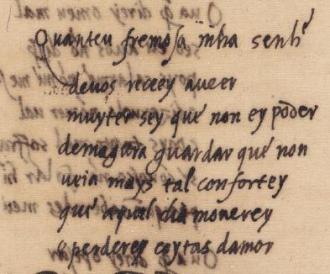 Quanteu fremosa mha senhr
deuos reçeey aueer
muyter sey que non ey poder
demagora guardar que non
ueia mays tal conforto ey
que aquel dia moirerey
e perderey coytas damor